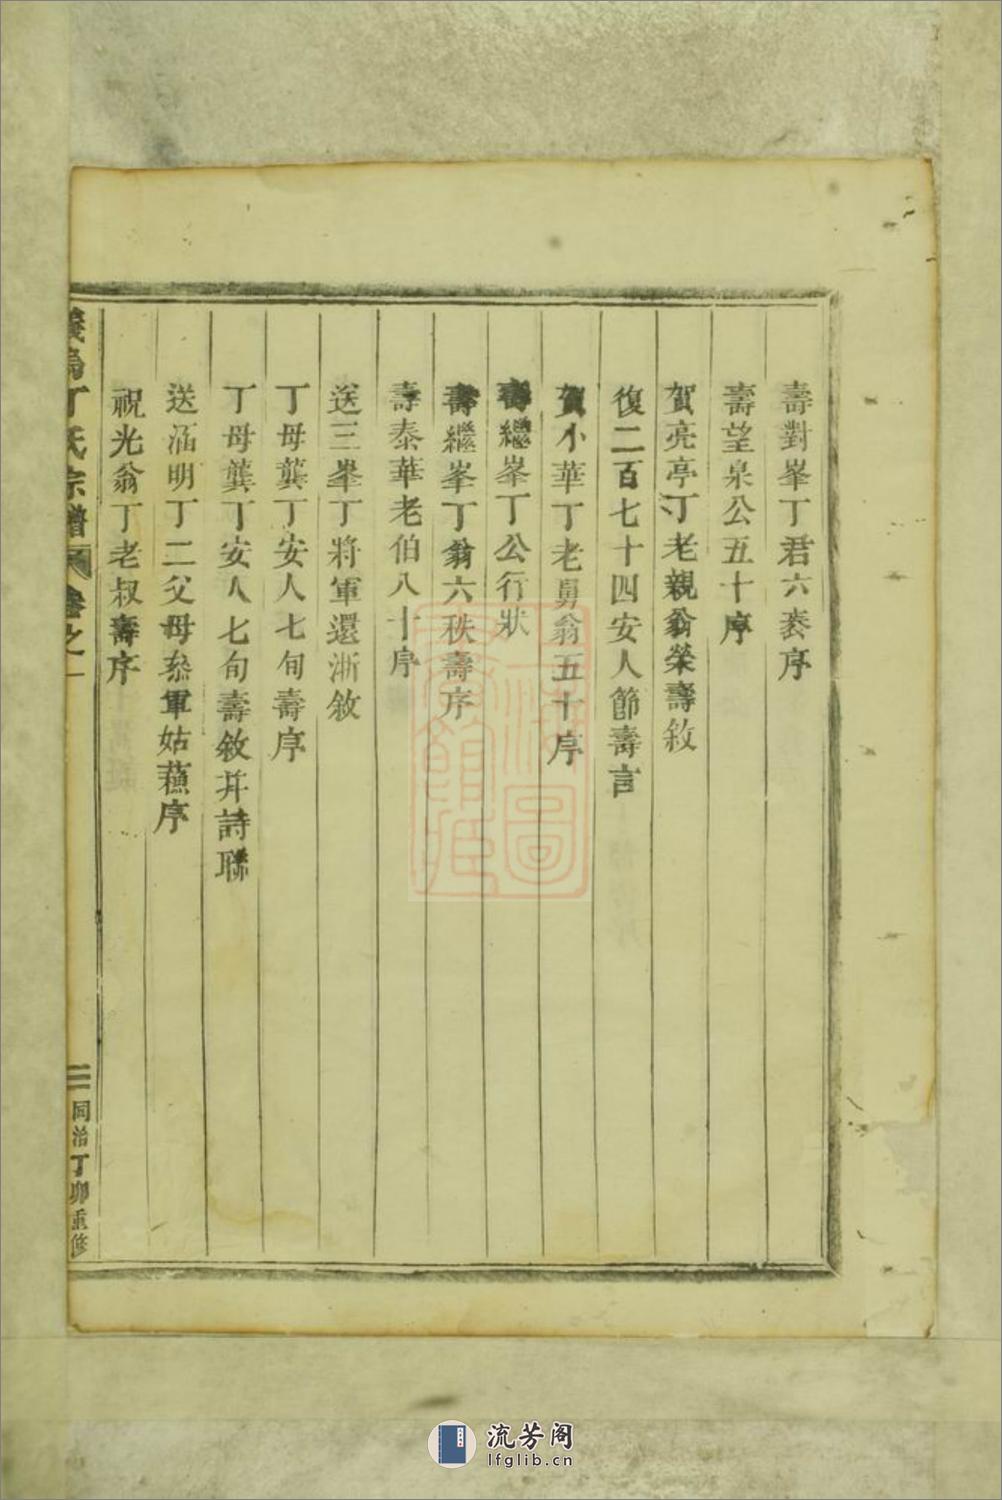 壽對峯丁君六袠序
壽望泉公五十序
賀亮亭丁老親翁榮壽敘
復二百七十四安人節壽言
賀小華丁老舅翁五十序
壽繼峯丁公行狀
壽繼峯丁翁六秩壽序
壽泰華老伯八十序
送三峯丁將軍還浙敘
丁母龔丁安人七旬壽序
丁母龔丁安人七旬壽敘并詩聯
送涵明丁二父母叅軍姑蘓序
祝光翁丁老叔壽序
義烏丁氏宗譜 卷之一
二 同治丁卯重修
上海圖書館藏
流芳阁
lfglib.cn